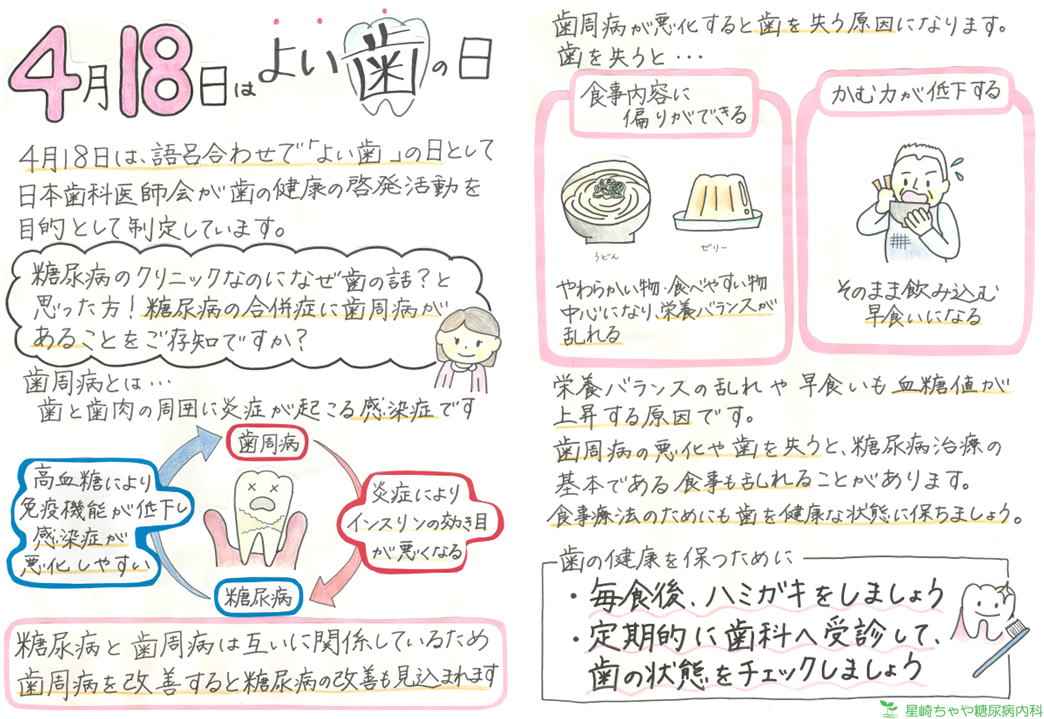 4月18日はよい歯の日
4月18日は、語呂合わせで「よい歯」の日として
日本歯科医師会が歯の健康の啓発活動を
目的として制定しています。
糖尿病のクリニックなのになぜ歯の話？と
思った方！糖尿病の合併症に歯周病が
あることをご存知ですか？
歯周病とは…
歯と歯肉の周囲に炎症が起こる感染症です
歯周病
炎症により
インスリンの効き目
が悪くなる
糖尿病
高血糖により
免疫機能が低下し
感染症が
悪化しやすい
糖尿病と歯周病は互いに関係しているため
歯周病を改善すると糖尿病の改善も見込まれます
歯周病が悪化すると歯を失う原因になります。
歯を失うと…
食事内容に
偏りができる
うどん
ゼリー
やわらかい物・食べやすい物
中心になり、栄養バランスが
乱れる
かむ力が低下する
そのまま飲み込む
早食いになる
栄養バランスの乱れや早食いも血糖値が
上昇する原因です。
歯周病の悪化や歯を失うと、糖尿病治療の
基本である食事も乱れることがあります。
食事療法のためにも歯を健康な状態に保ちましょう。
歯の健康を保つために
・毎食後、ハミガキをしましょう
・定期的に歯科へ受診して、
歯の状態をチェックしましょう
星崎ちゃや糖尿病内科